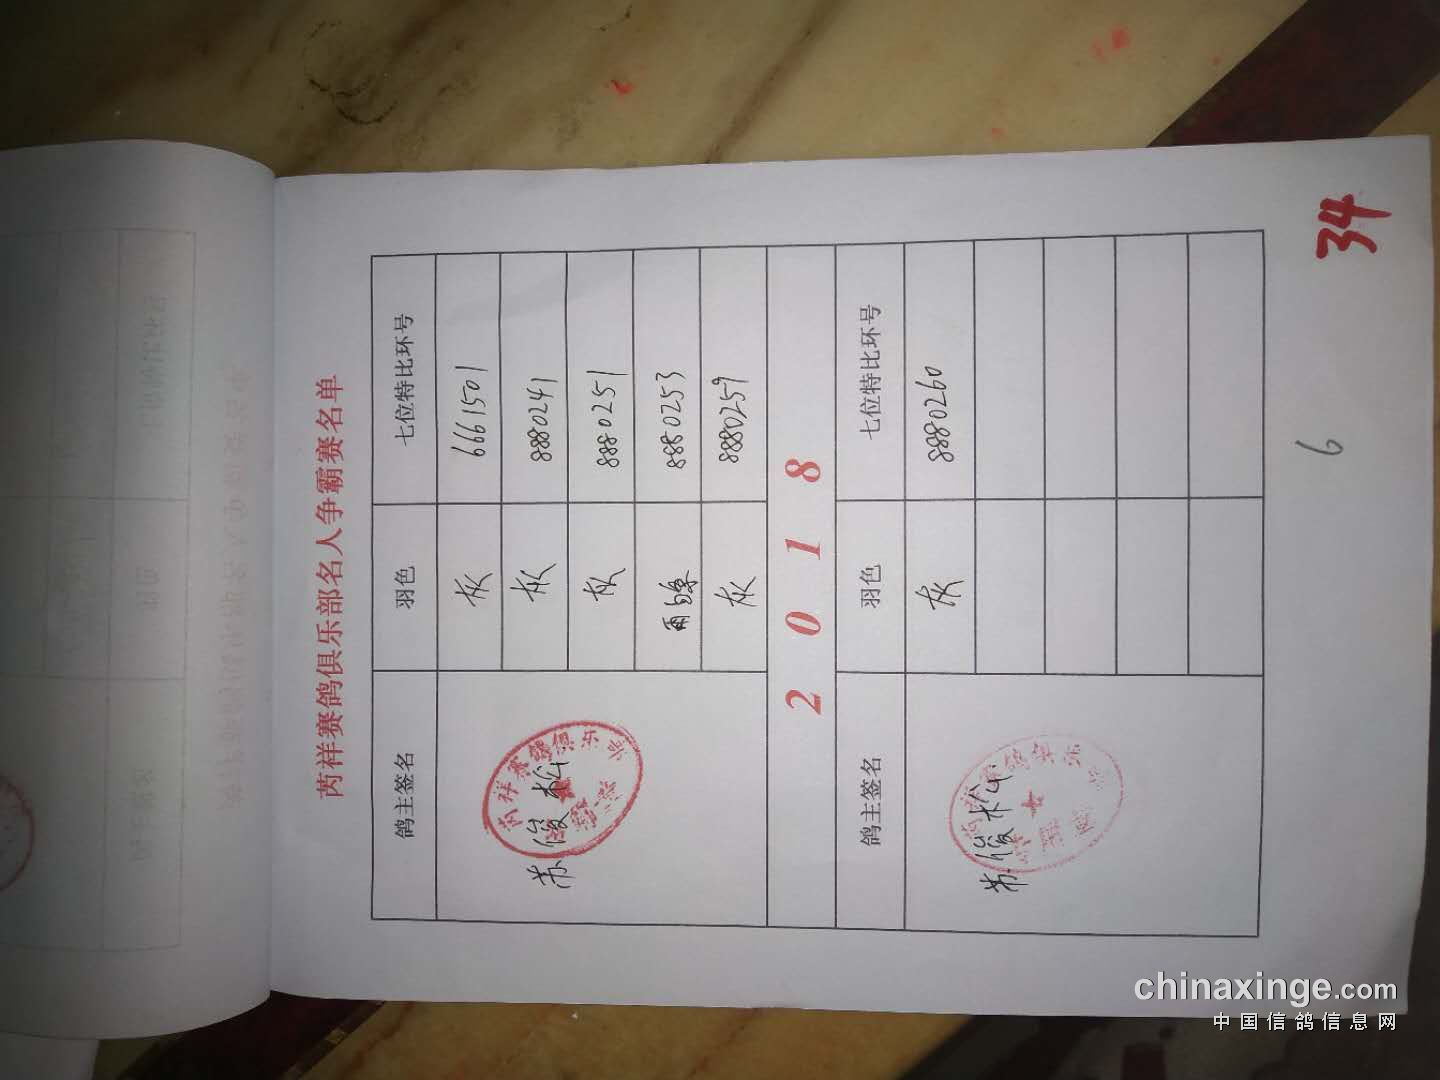 芮祥赛鸽俱乐部名人争霸赛名单
鸽主签名 羽色 七位特比环号
苏俊松 灰 6661501
灰 8880241
灰 8880251
雨线 8880253
灰 8880259
2018
鸽主签名 羽色 七位特比环号
苏俊松 灰 8880260
6
34
chinaxinge.com
中国信鸽信息网